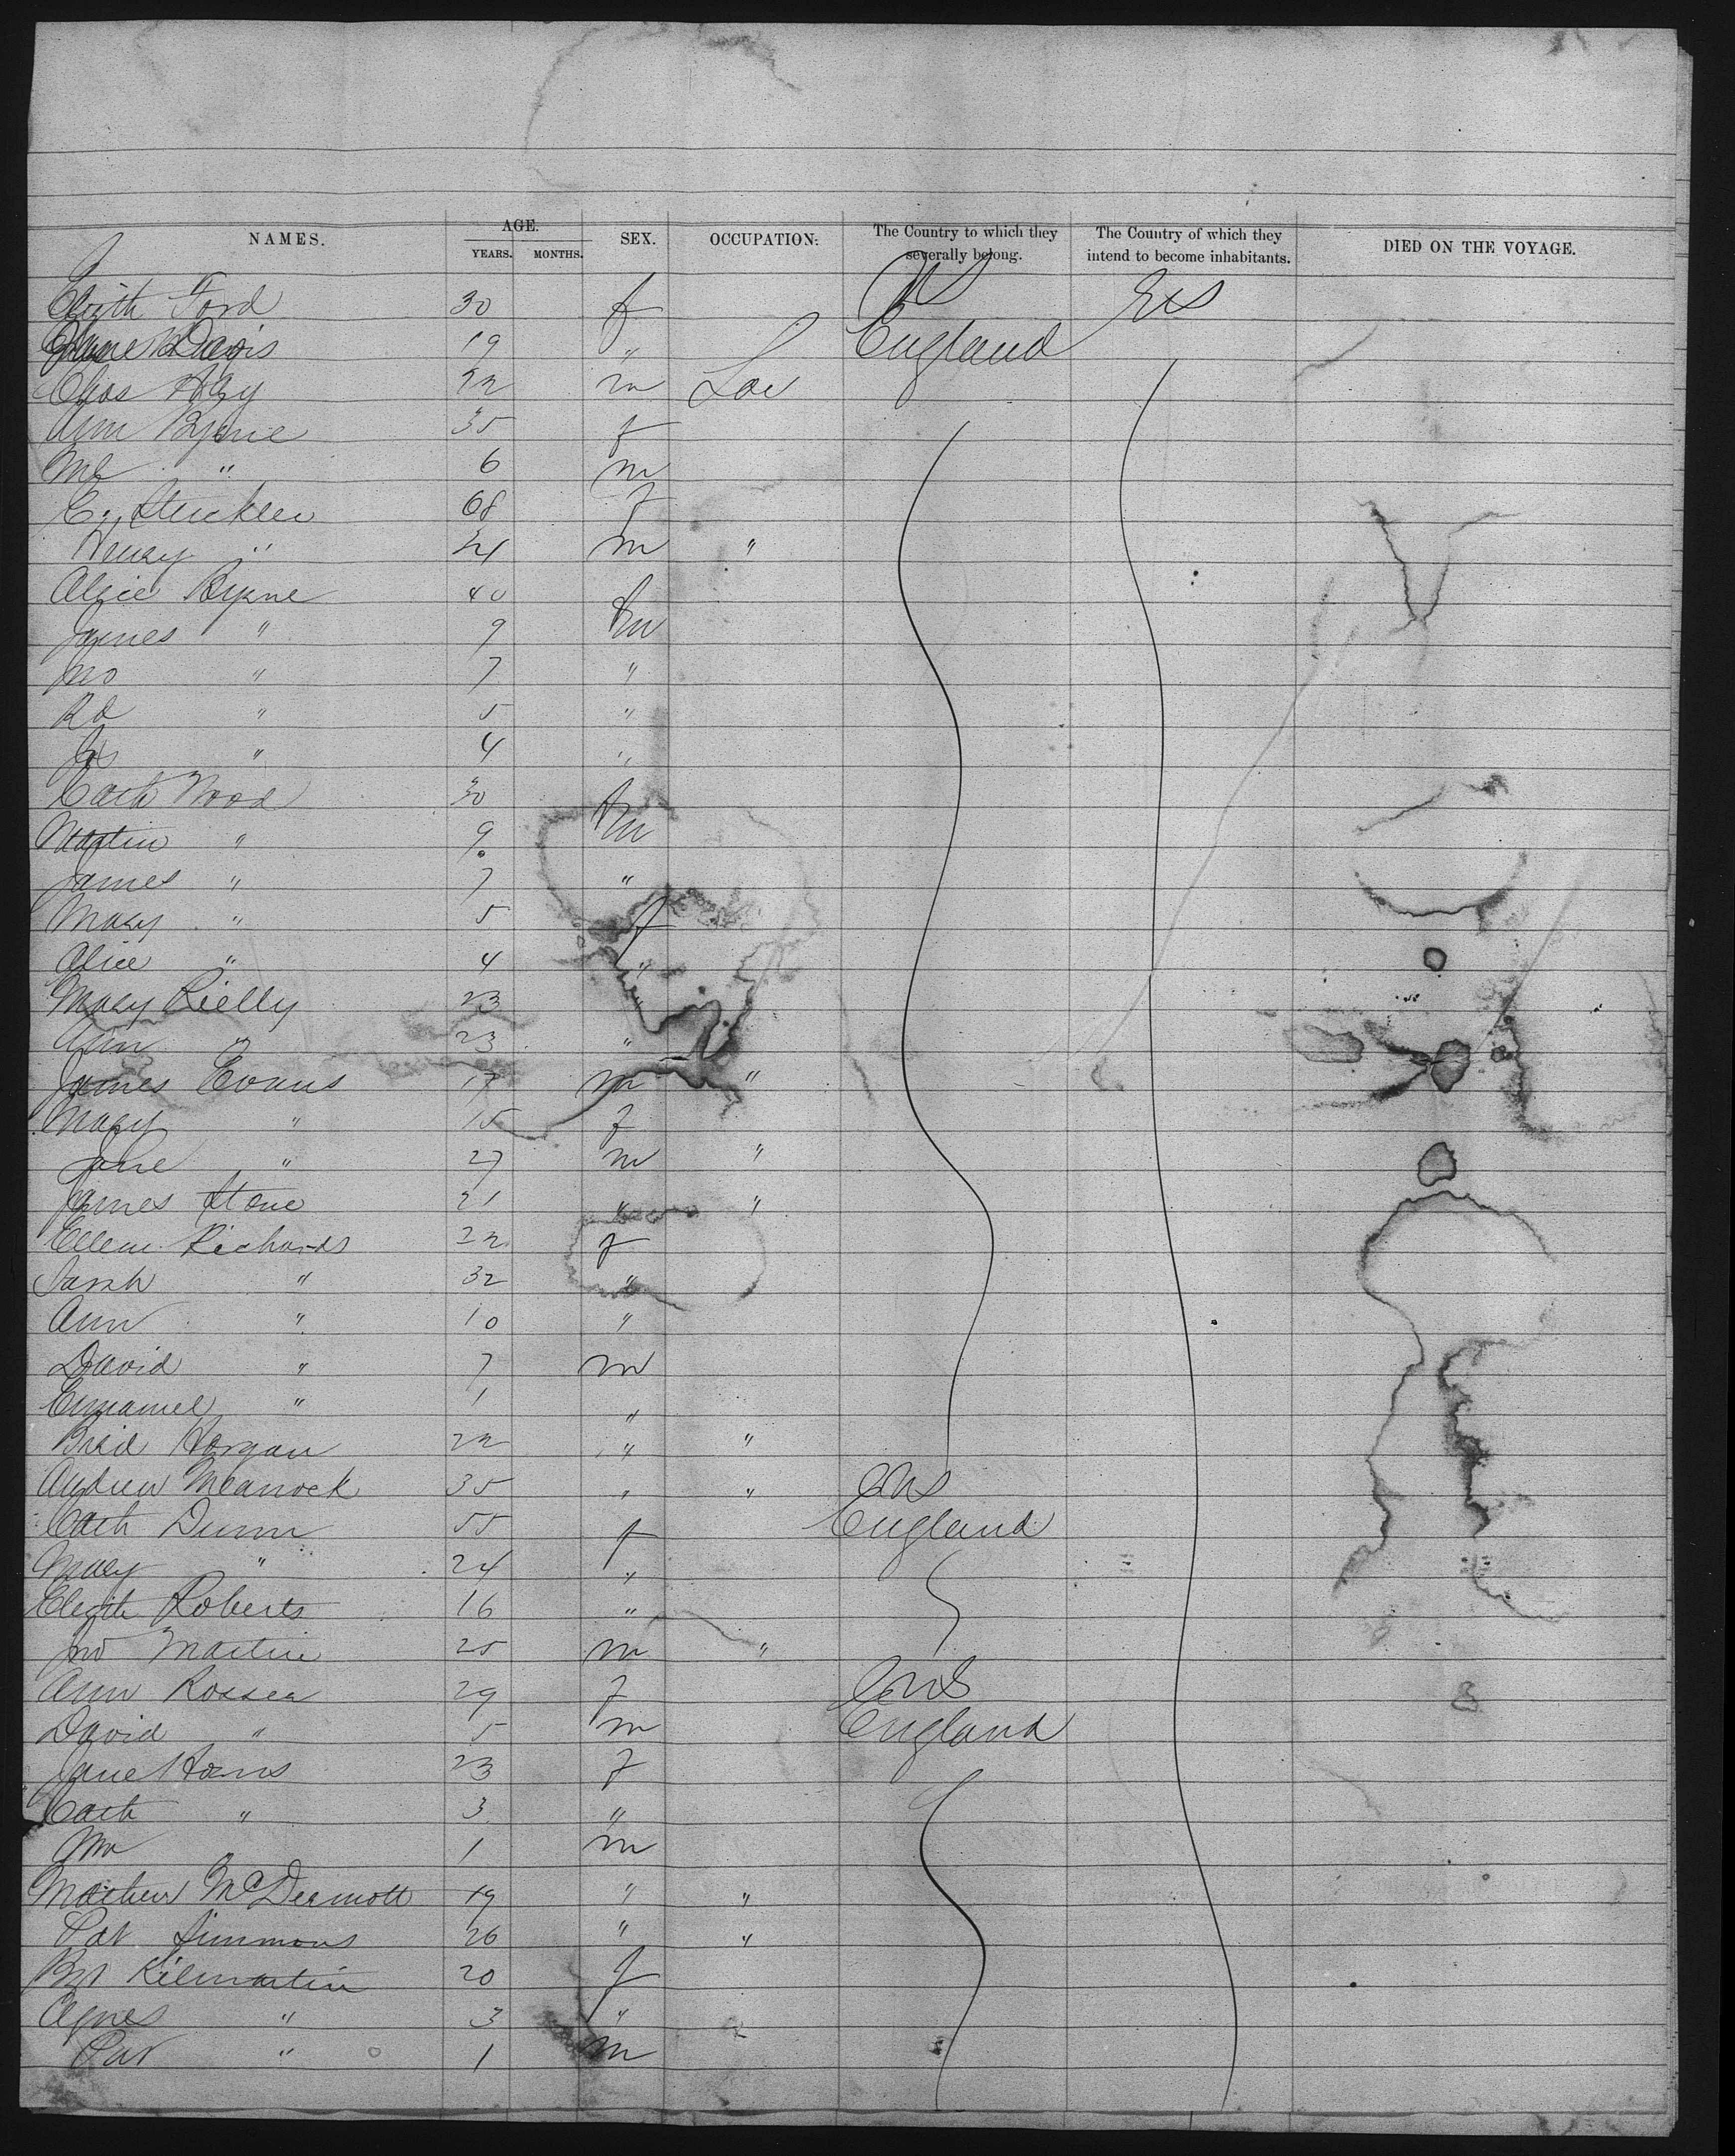 NAMES. AGE. YEARS. MONTHS. SEX. OCCUPATION. The Country to which they severally belong. The Country of which they intend to become inhabitants. DIED ON THE VOYAGE.
Ford 30 f US
Davis 19 " England
Chas Hay 22 m
Ann Byrne 35 f
" 6 m
C. 68 f
Henry " m "
Alice Byrne 40 f
James " 9 m
Jno " 7 "
Rd " 5 "
" 4 "
Cath Wood 30 f
Martin " 9 m
James " 7 "
Mary " 5 f
Alice " 4 "
Mary Rielly 23 "
Ann " 23 "
James Evans 17 m "
Mary " 15 f
" 27 m "
James Stone 21 " "
Ellen Richards 22 f
Sarah " 32 "
Ann " 10 "
David " 7 m
Emanuel " 1 "
22 " "
Andrew 35 " " US
Cath Dunn 55 f England
Mary " 24 "
Roberts 16 "
Jno Martin 25 m "
Ann 29 f US
David " 5 m England
Jane 23 f
Cath " 3 "
Wm 1 m
Mathew McDermott 19 " "
Pat Simmons 26 " "
Kilmartin 20 f
Agnes " 3 "
Pat " 1 m